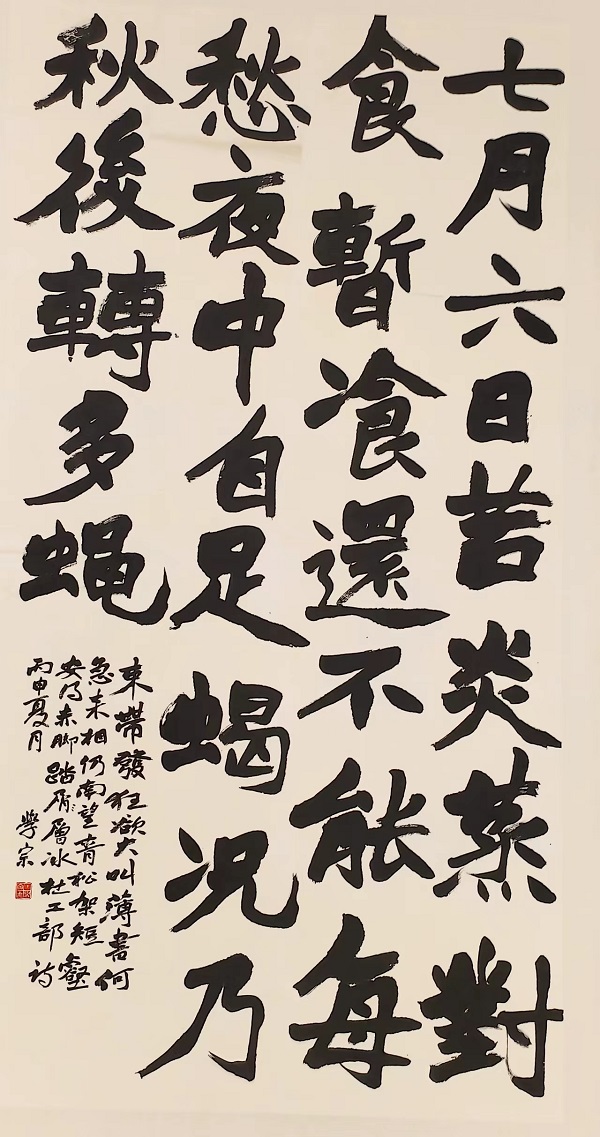 七月六日苦炎蒸對
食暫飡還不能每
愁夜中自足蝎況乃
秋後轉多蝇
束帶發狂欲大叫薄書何
急来相仍南望青松架短壑
安得赤脚踏層冰杜工部詩
丙申夏月 學宗